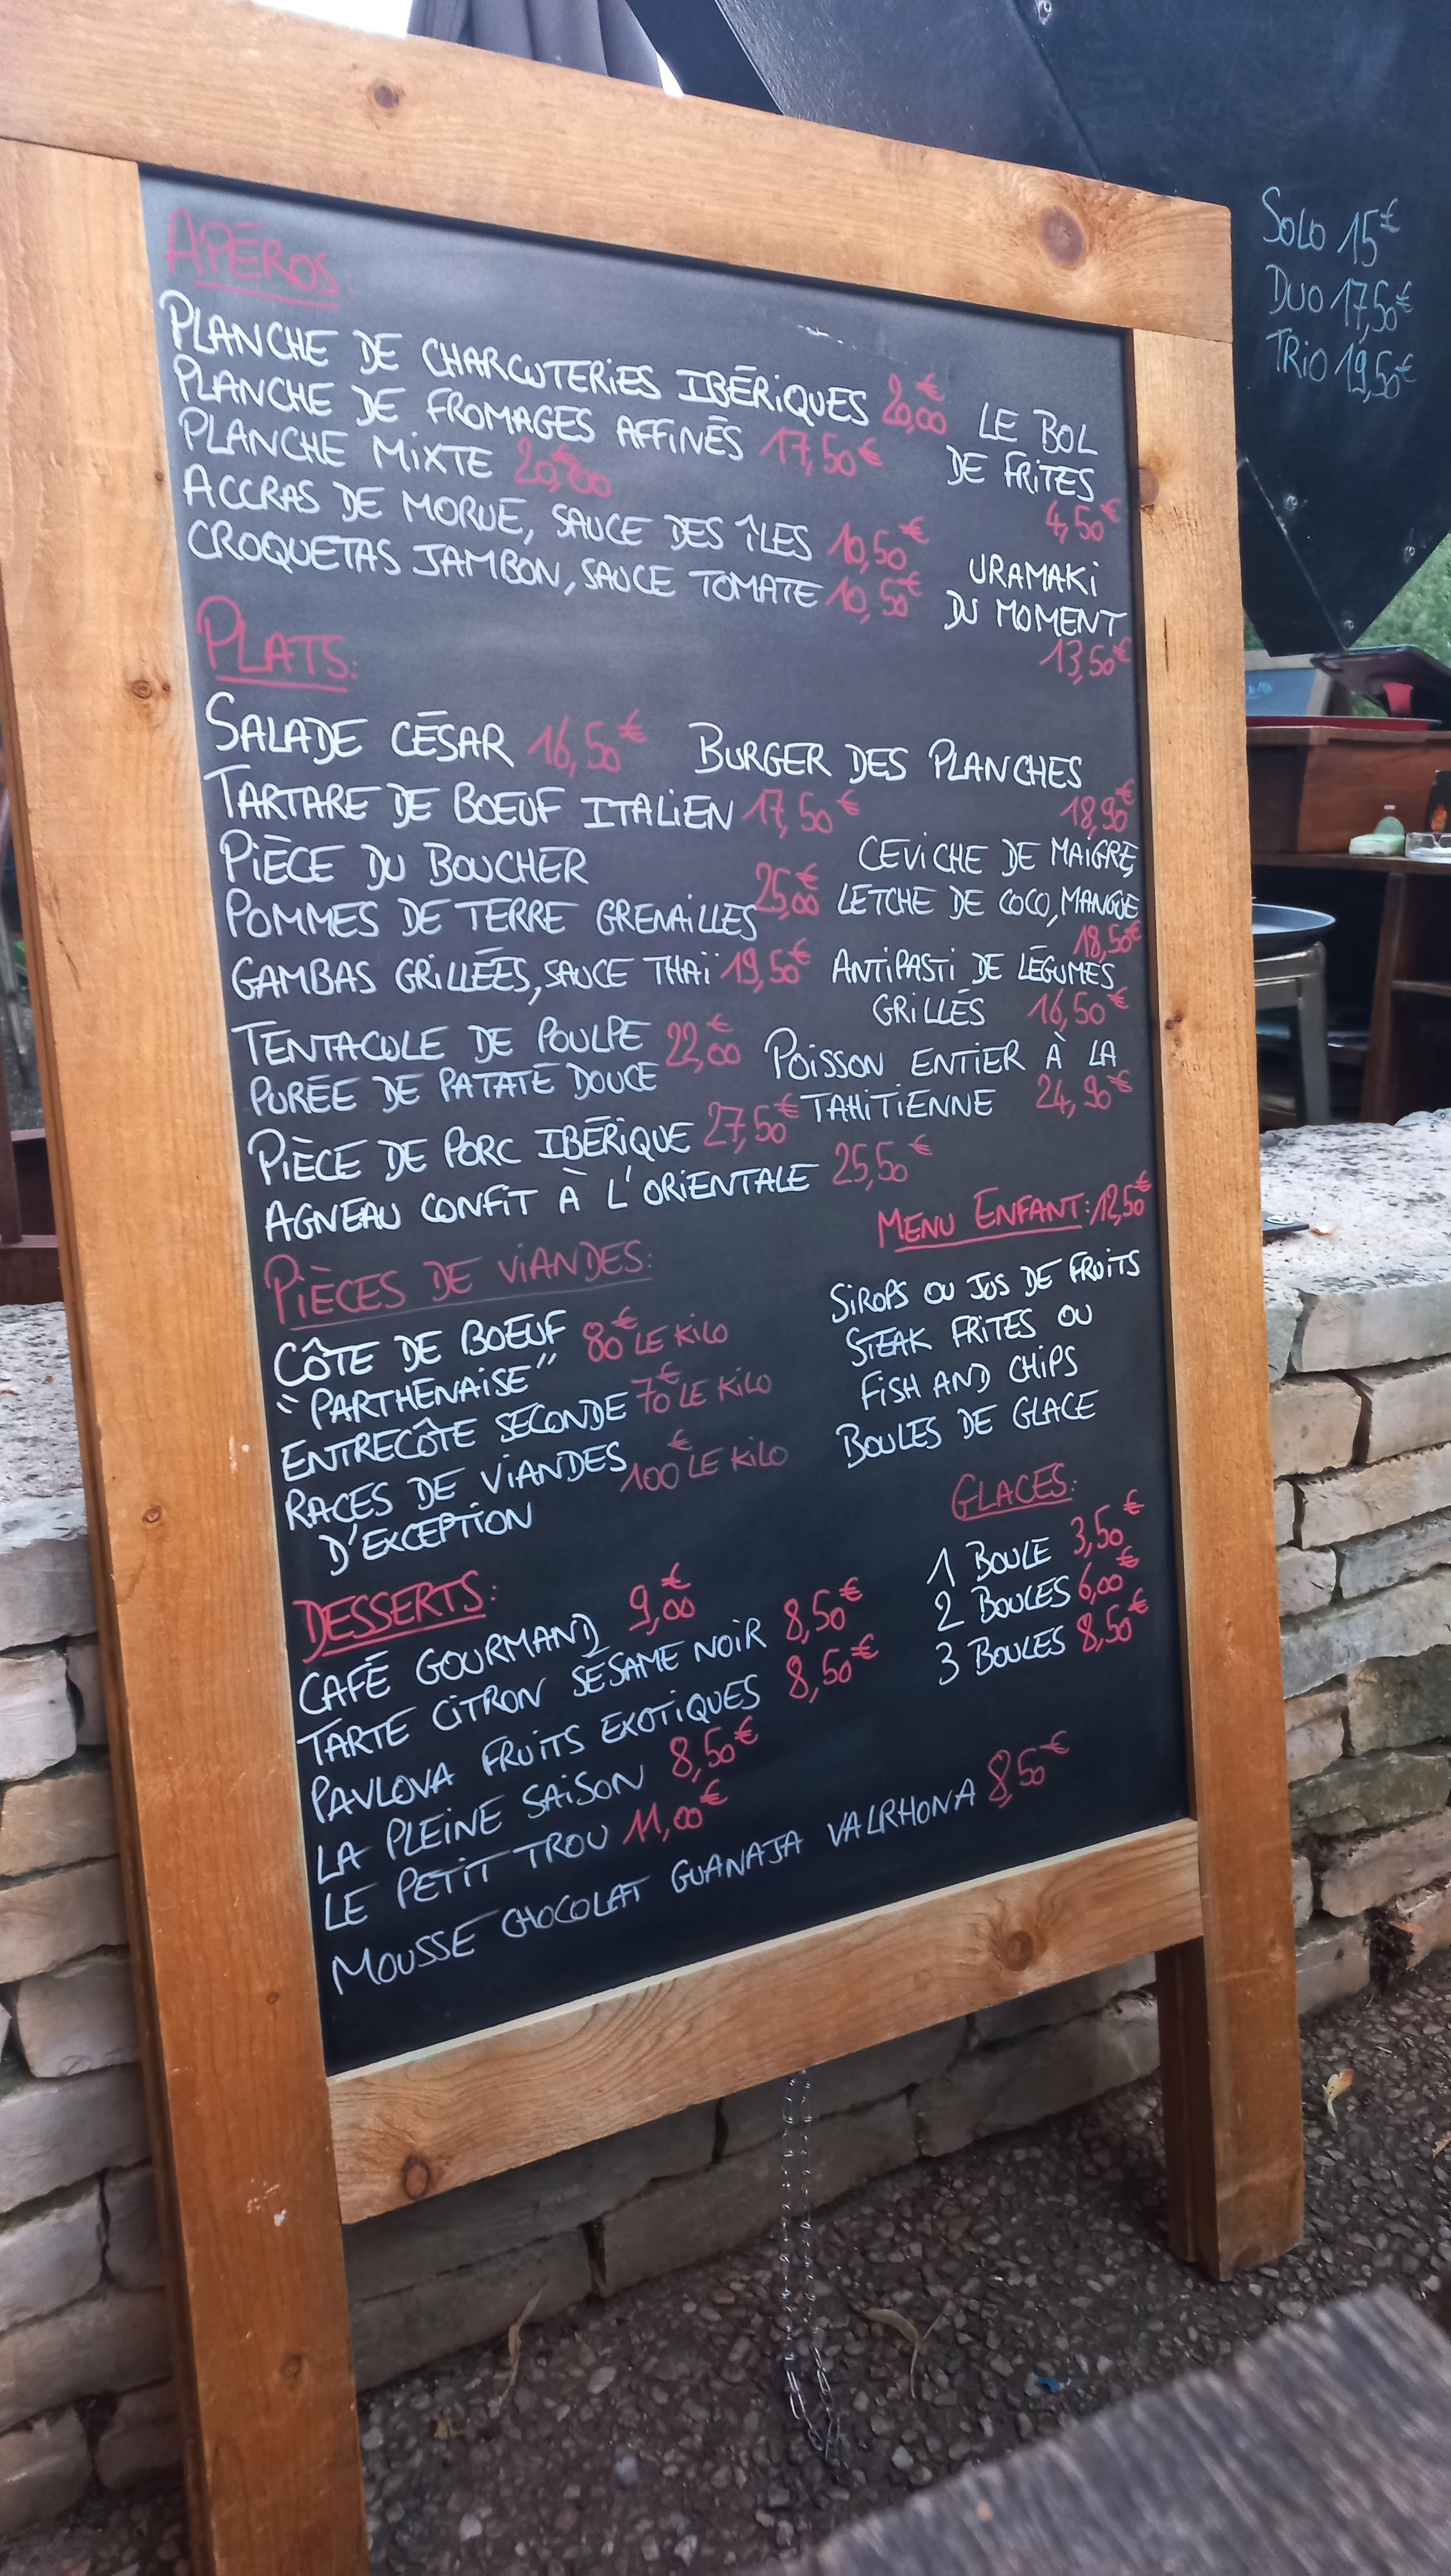 APÉROS:
PLANCHE DE CHARCUTERIES IBÉRIQUES 20,00€
PLANCHE DE FROMAGES AFFINÉS 17,50€
PLANCHE MIXTE 20,00€
ACCRAS DE MORUE, SAUCE DES ÎLES 10,50€
CROQUETAS JAMBON, SAUCE TOMATE 10,50€
LE BOL
DE FRITES
4,50€
URAMAKI
DU MOMENT
13,50€
PLATS:
SALADE CÉSAR 16,50€
TARTARE DE BOEUF ITALIEN 17,50€
PIÈCE DU BOUCHER
POMMES DE TERRE GRENAILLES 25,00€
GAMBAS GRILLÉES, SAUCE THAÏ 19,50€
TENTACULE DE POULPE 22,00€
PURÉE DE PATATE DOUCE
PIÈCE DE PORC IBÉRIQUE 27,50€
AGNEAU CONFIT À L'ORIENTALE 25,50€
BURGER DES PLANCHES
18,90€
CEVICHE DE MAIGRE,
LETCHE DE COCO, MANGUE
18,50€
ANTIPASTI DE LÉGUMES
GRILLÉS 16,50€
POISSON ENTIER À LA
TAHITIENNE 24,90€
PIÈCES DE VIANDES:
CÔTE DE BOEUF 80€ LE KILO
"PARTHENAISE"
ENTRECÔTE SECONDE 70€ LE KILO
RACES DE VIANDES 100€ LE KILO
D'EXCEPTION
MENU ENFANT: 12,50€
SIROPS OU JUS DE FRUITS
STEAK FRITES OU
FISH AND CHIPS
BOULES DE GLACE
GLACES:
1 BOULE 3,50€
2 BOULES 6,00€
3 BOULES 8,50€
DESSERTS:
CAFÉ GOURMAND 9,00€
TARTE CITRON SÉSAME NOIR 8,50€
PAVLOVA FRUITS EXOTIQUES 8,50€
LA PLEINE SAISON 8,50€
LE PETIT TROU 11,00€
MOUSSE CHOCOLAT GUANAJA VALRHONA 8,50€
SOLO 15€
DUO 17,50€
TRIO 19,50€